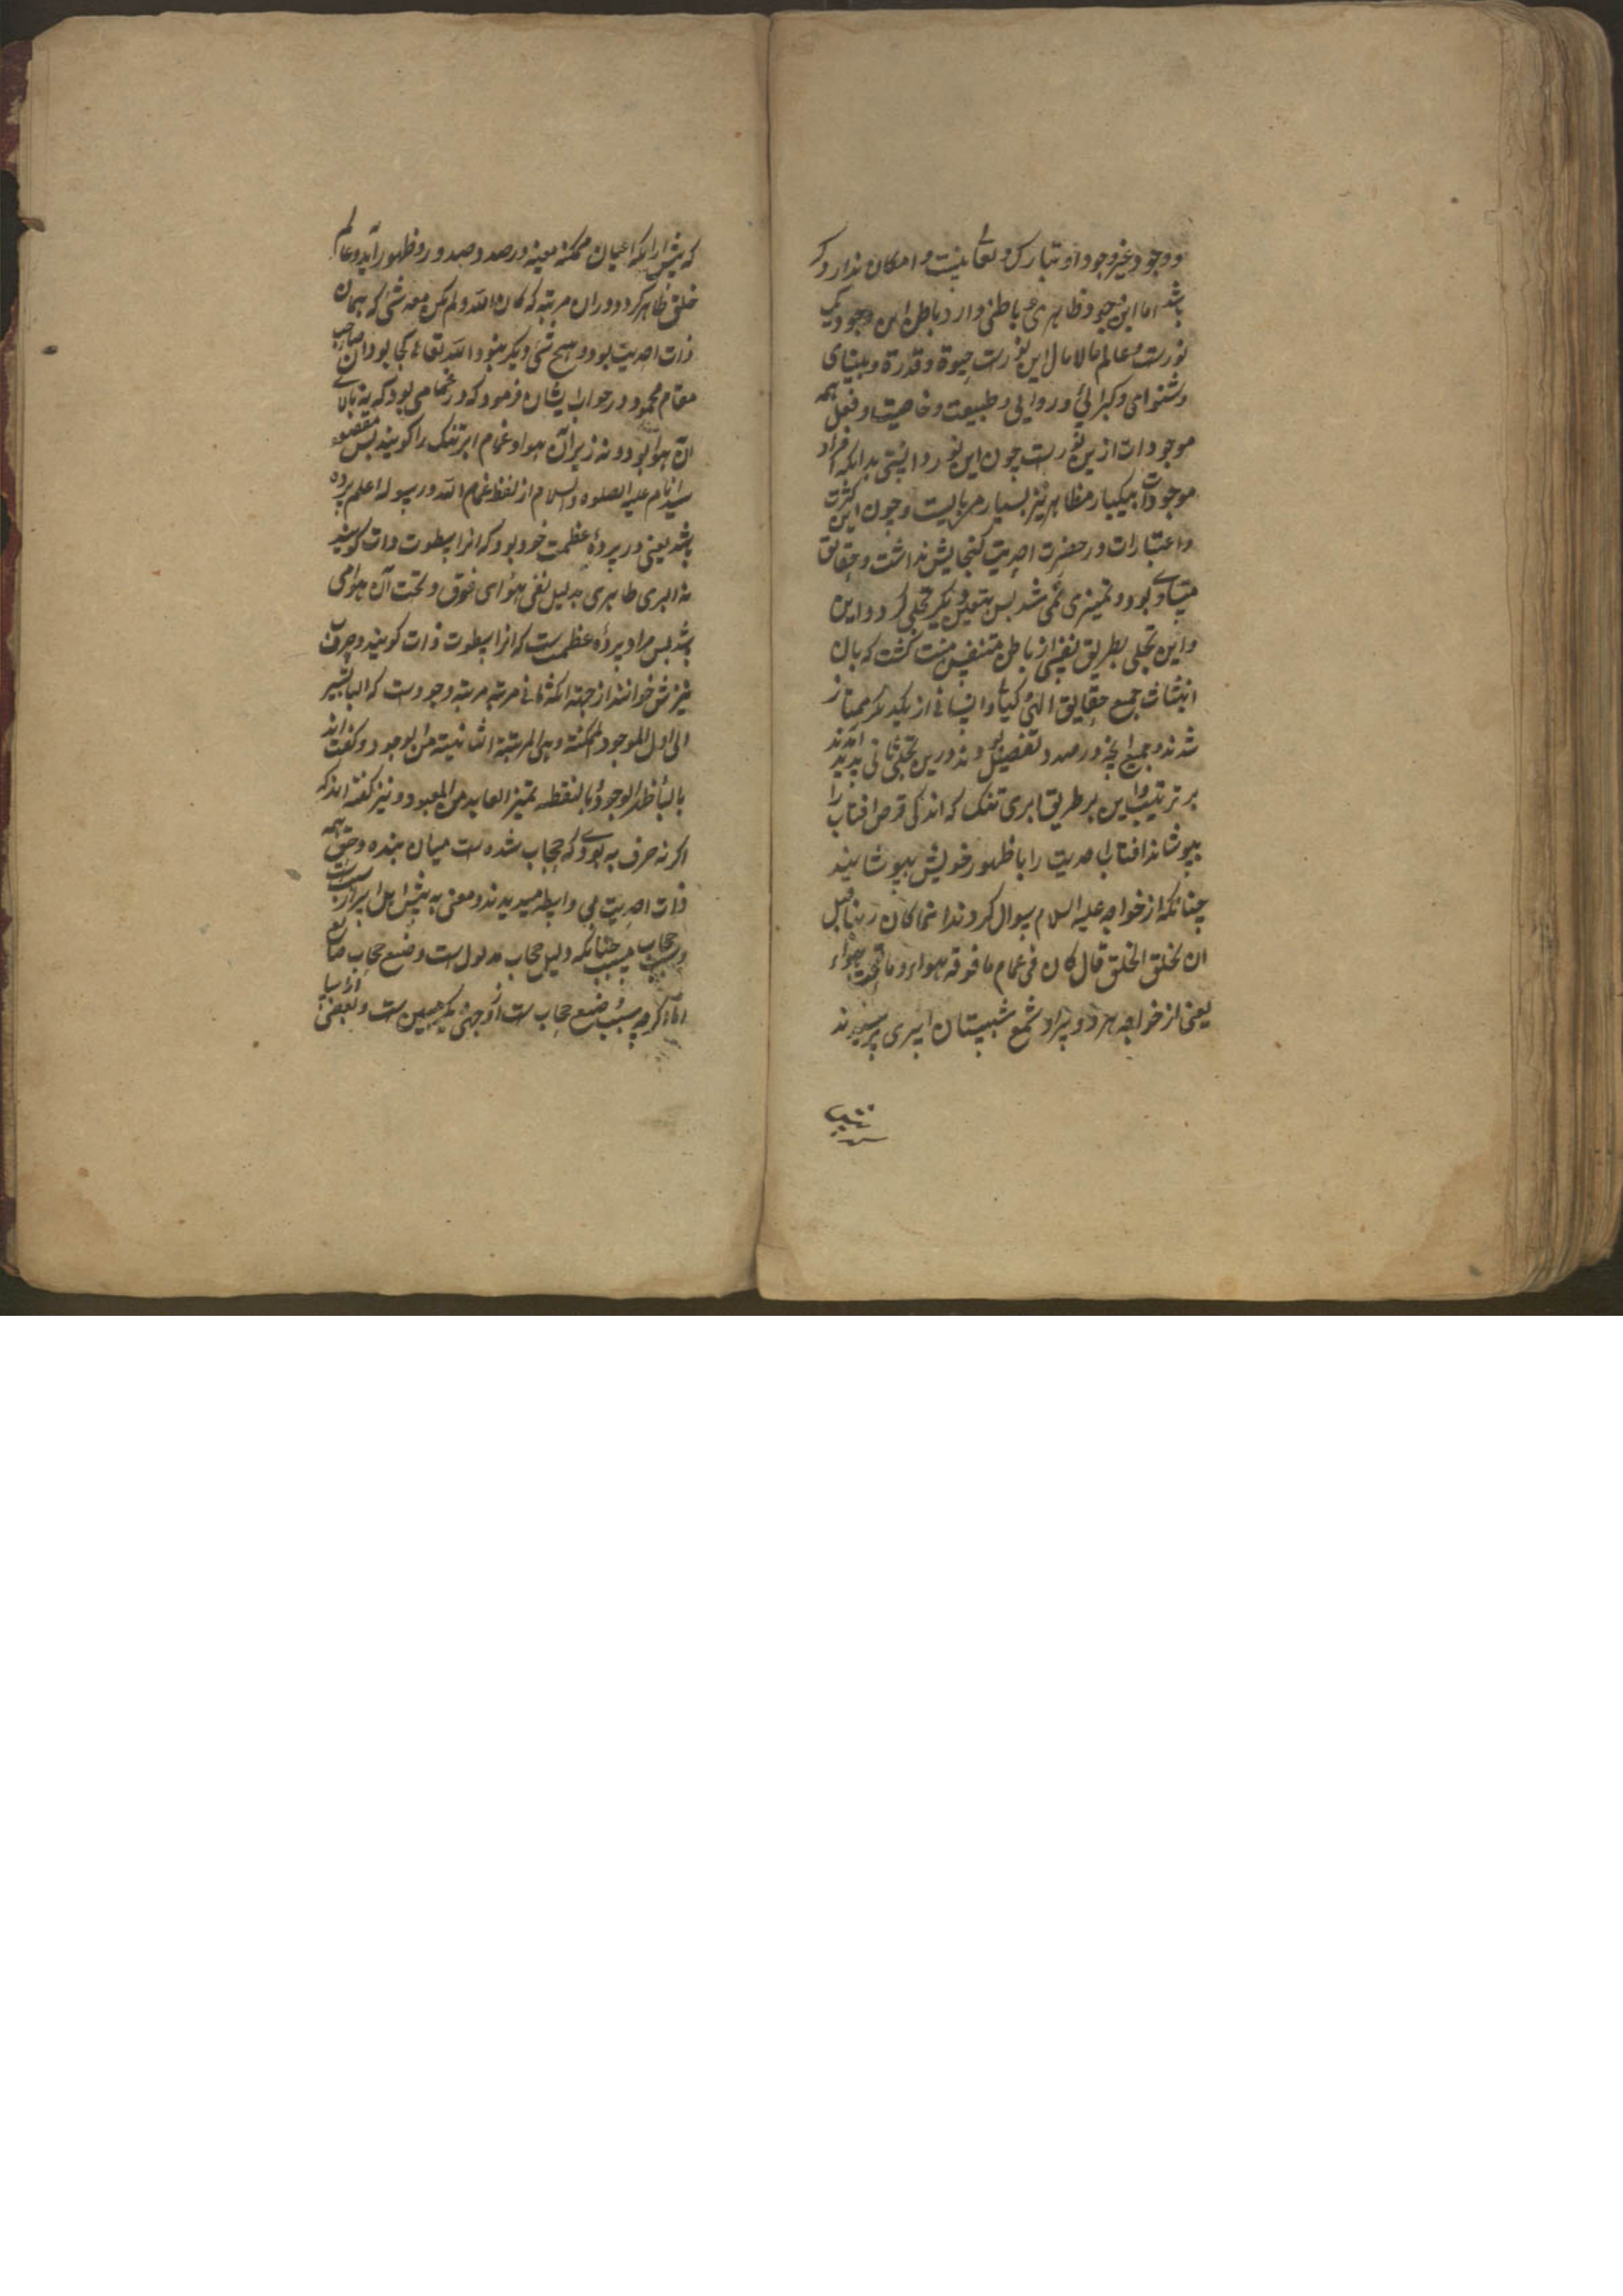 و وجود غیر وجود او تبارک و تعالی نیست و امکان ندارد که
باشد اما این وجود ظاهری و باطنی دارد باطن این وجود یک
نورست و عالم مالامال این نورست حیوة و قدرة و بینای
و شنوای و کبرائی و روایی و طبیعت و خاصیت و فعل همه
موجودات ازین نورست چون این نور دانستی بدانکه افراد
موجودات بیکبار مظاهر نیز بسیار مراتبست و چون این کثرت
و اعتبارات در حضرت احدیت گنجایش نداشت و حقایق
متساوی بود و تمیزی نمی شد بس بتعین دیگر تجلی کرد و این
و این تجلی بطریق نفسی از باطن متنفس منبث گشت که بان
انبثاث جمیع حقایق الهی و کیانی و انسانی از یکدیگر ممتاز
شدند و جمیع انچه در صدد تفصیل بودند درین تجلی ثانی پدید آمدند
بر ترتیب و این بر طریق ابری تنک که اندکی قرص افتاب را
بپوشاند افتاب احدیت را با ظهور خویش بپوشانید
چنانکه از خواجه علیه السلام سوال کردند انما کان ربنا قبل
ان یخلق الخلق قال کان فی غمام ما فوقه هواء و ما تحته هواء
یعنی از خواجه هر دو سرا و شمع شبستان اسری پرسیدند
که پیش از انکه اعیان ممکنه معینه در صدد صدور و ظهور آید و عالم
خلق ظاهر کرد در ان مرتبه که کان الله و لم یکن معه شی که همان
ذات احدیت بود و هیچ شی دیگر نبود الله تعالی کجا بود ان صاحب
مقام محمود در جواب ایشان فرمود که در غمامی بود که نه بالای
آن هوا بود و نه زیر آن هوا و غمام ابر تنک را گویند بس مقصود
سید انام علیه الصلوه و السلام از لفظ غمام الله و رسوله اعلم پرده
باشد یعنی در پردهٔ عظمت خود بود که انرا سطوت ذات گویند
نه ابری ظاهری بدلیل نفی هوای فوق و تحت آن هوا می
باشد بس مراد پردهٔ عظمت ست که انرا سطوت ذات گویند و حرف ب
نیزش خوانند از جهة انکه ثانی مرتبه مرتبهٔ وجودست که الباء تشیر
الی اول الموجود الممکنة و هی المرتبة الثانیة من الوجود و گفته اند
بالباء ظهر الوجود و بالنقطه تمیز العابد من المعبود و نیز گفته اند که
اگر نه حرف به بودی که حجاب شده ست میان بنده و حق همه
ذات احدیت بی واسطه میدیدند و معنی به پیش اهل اسرار سبب است
و سبب حجاب مسبب چنانکه دلیل حجاب مدلول است و صنع حجاب صانع
اما اگرچه سبب صنع حجاب ست از وجهی یکی همین ست و بعضی از اسبا